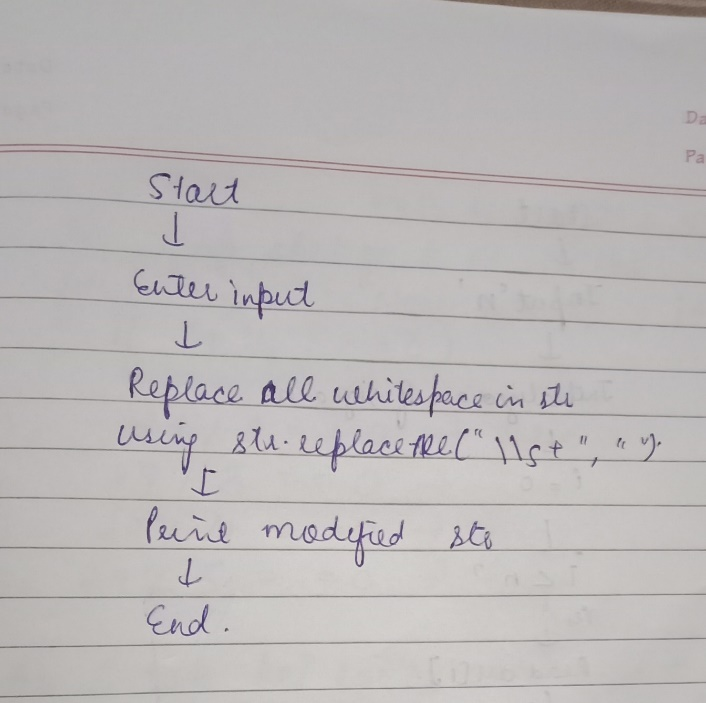 Da
Pa
Start
↓
Enter input
↓
Replace all whitespace in str
using str.replaceAll("\\s+", "").
↓
Print modified str
↓
End.